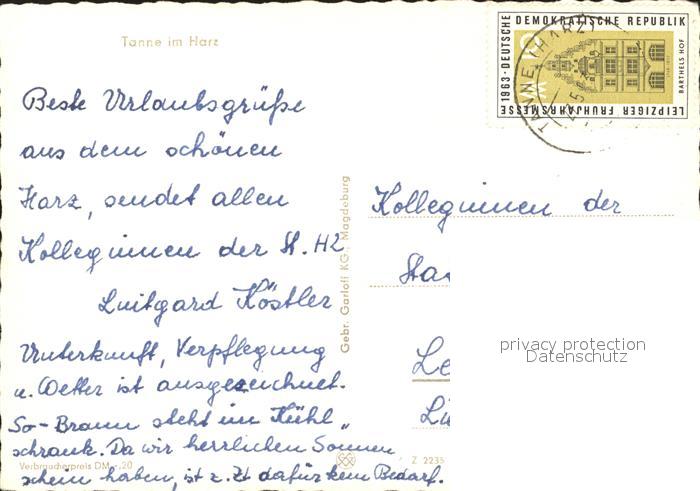 Tanne im Harz
1963 · DEUTSCHE DEMOKRATISCHE REPUBLIK
LEIPZIGER FRÜHJAHRSMESSE
BARTHELS HOF
TANNE (HARZ)
Beste Urlaubsgrüße
aus dem schönen
Harz, sendet allen
Kolleginnen der St. H2
Luitgard Köstler
Unterkunft, Verpflegung
u. Wetter ist ausgezeichnet.
So-Braun steht im Kühl„
schrank. Da wir herrlichen Sonnen
schein haben, ist z. Zt dafür kein Bedarf.
Verbraucherpreis DM -,20
Gebr. Garloff KG., Magdeburg
Z 2235
Kolleginnen der
Sta
Le
privacy protection
Datenschutz